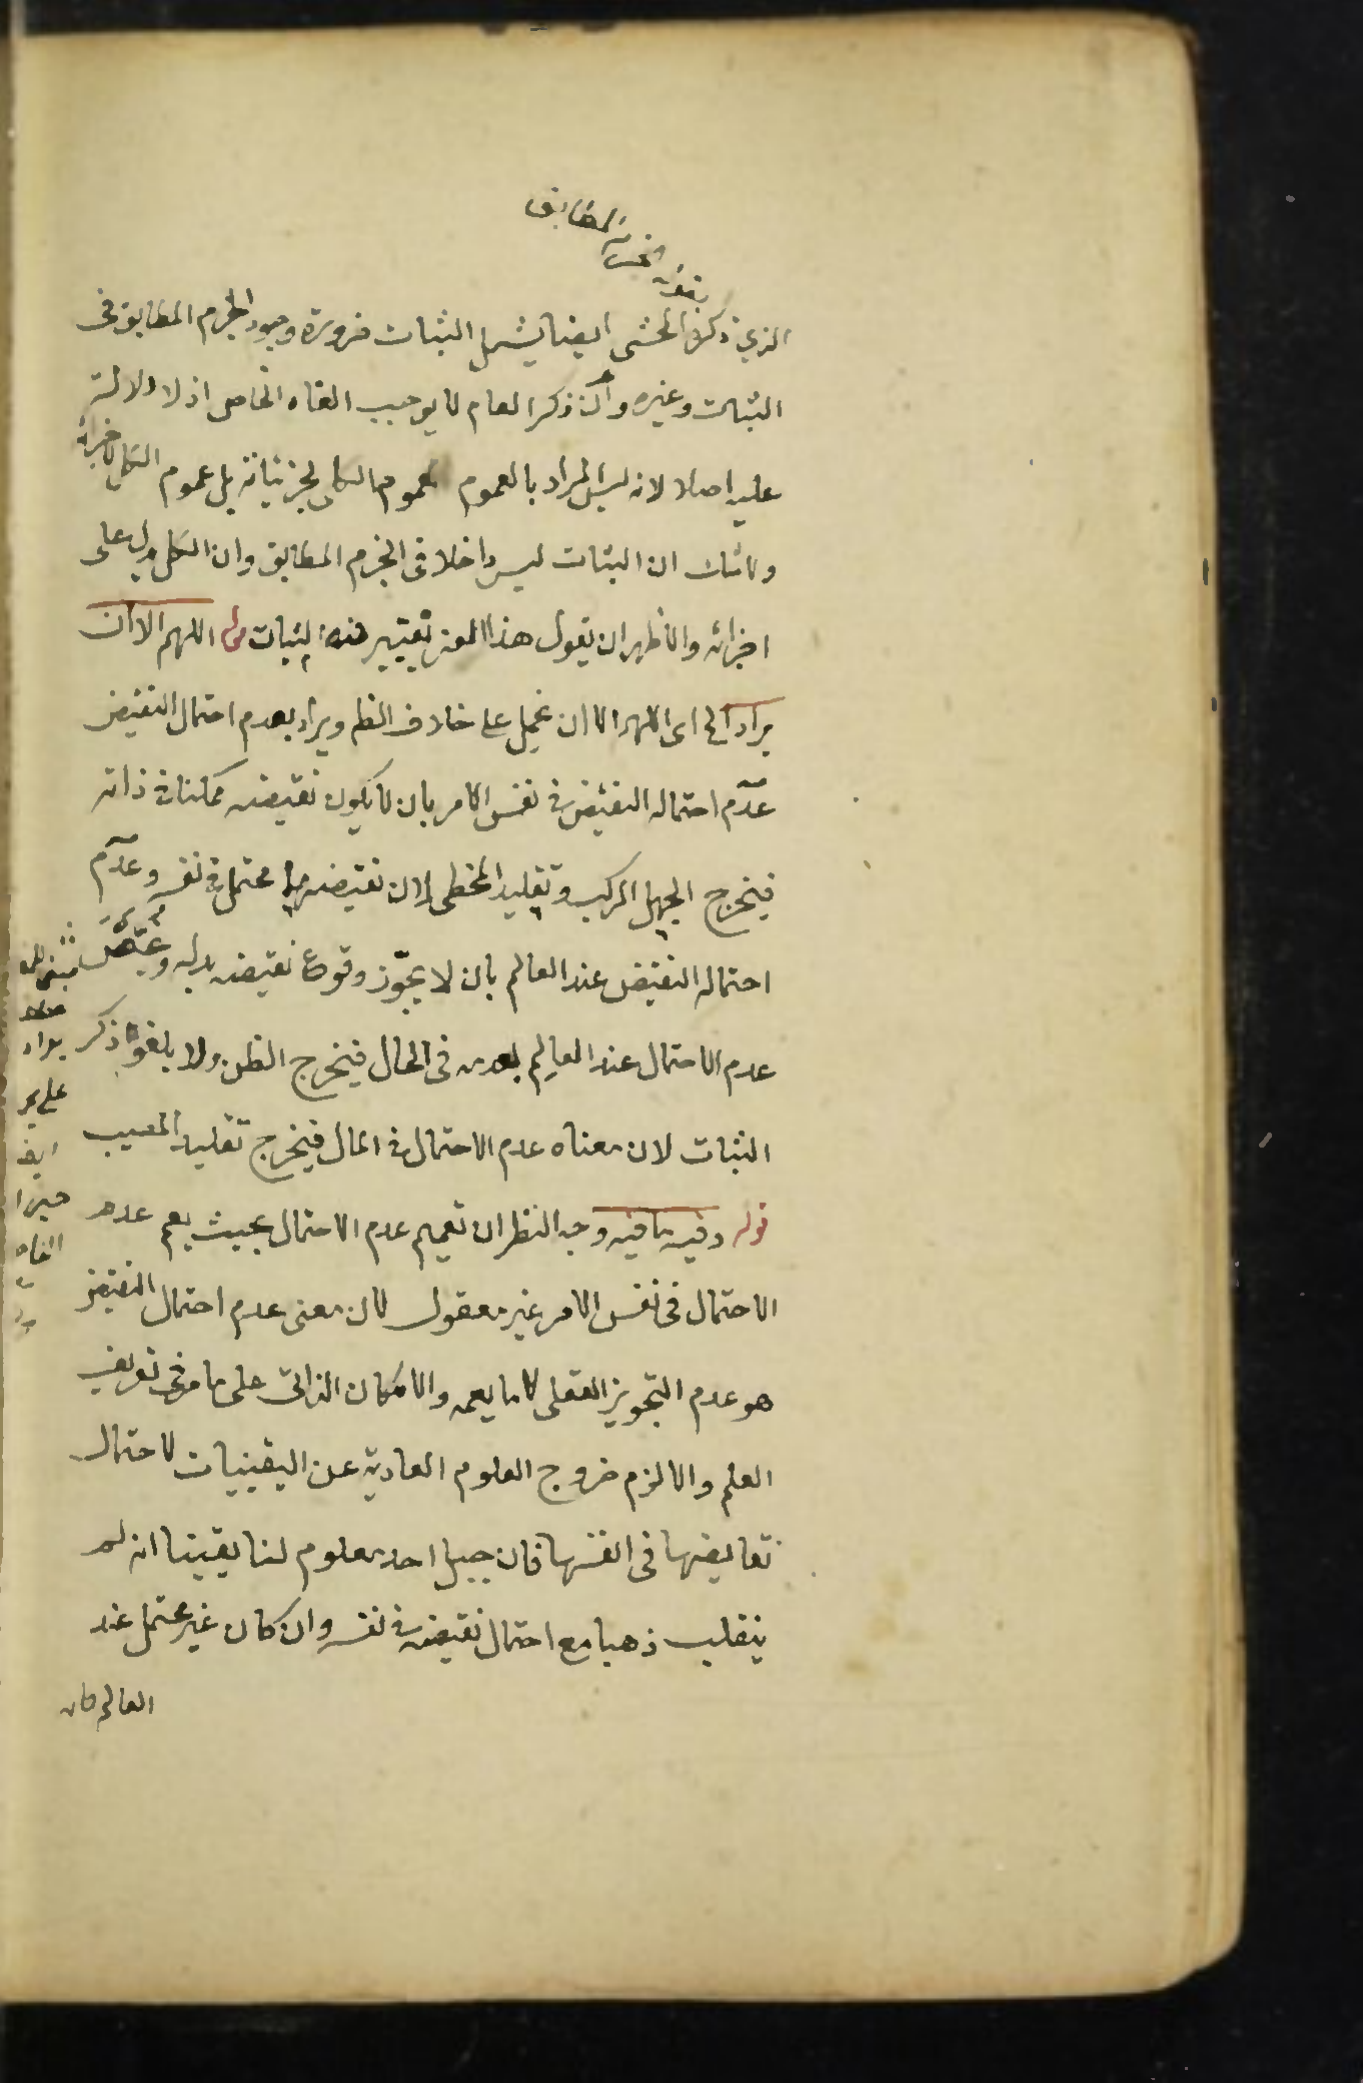 بقوله الجزم المطابق
الذي ذكره المحشى ايضا يشمل الثبات ضرورة وجود الجزم المطابق فى
الثبات وغيره وان ذكر العام لا يوجب الغاه الخاص اذ لا دلالة
عليه اصلا لانه ليس المراد بالعموم عموم الكلى لجزئياته بل عموم الكل لاجزائه
ولا شك ان الثبات ليس داخلا فى الجزم المطابق وان الكل يدل على
اجزائه والاظهر ان يقول هذا اللغو بتغيير الثبات قوله اللهم الا ان
يراد الخ اى اللهم الا ان يحمل على خلاف الظ ويراد بعدم احتمال النقيض
عدم احتماله النقيض فى نفس الامر بان لا يكون نقيضه ممكنا فى ذاته
فيخرج الجهل المركب وتقليد المخطى لان نقيضهما محتمل فى نفسه وعدم
احتماله النقيض عند العالم بان لا يجوز وقوع نقيضه بدله
عدم الاحتمال عند العالم بعده فى الحال فيخرج الظن ولا يلغو ذكر
الثبات لان معناه عدم الاحتمال فى المال فيخرج تقليد المصيب
قوله وفيه ما فيه وجه النظر ان تعميم عدم الاحتمال بحيث يعم عدم
الاحتمال فى نفس الامر غير معقول لان معنى عدم احتمال النقيض
هو عدم التجويز العقلى لا ما يعمه والامكان الذاتى على ما مر فى تعريف
العلم والا لزم خروج العلوم العادية عن اليقينيات لاحتمال
نقايضها فى انفسها فان جبل احد معلوم لنا يقينا انه لم
ينقلب ذهبا مع احتمال نقيضه فى نفسه وان كان غير محتمل عند
العالم فان